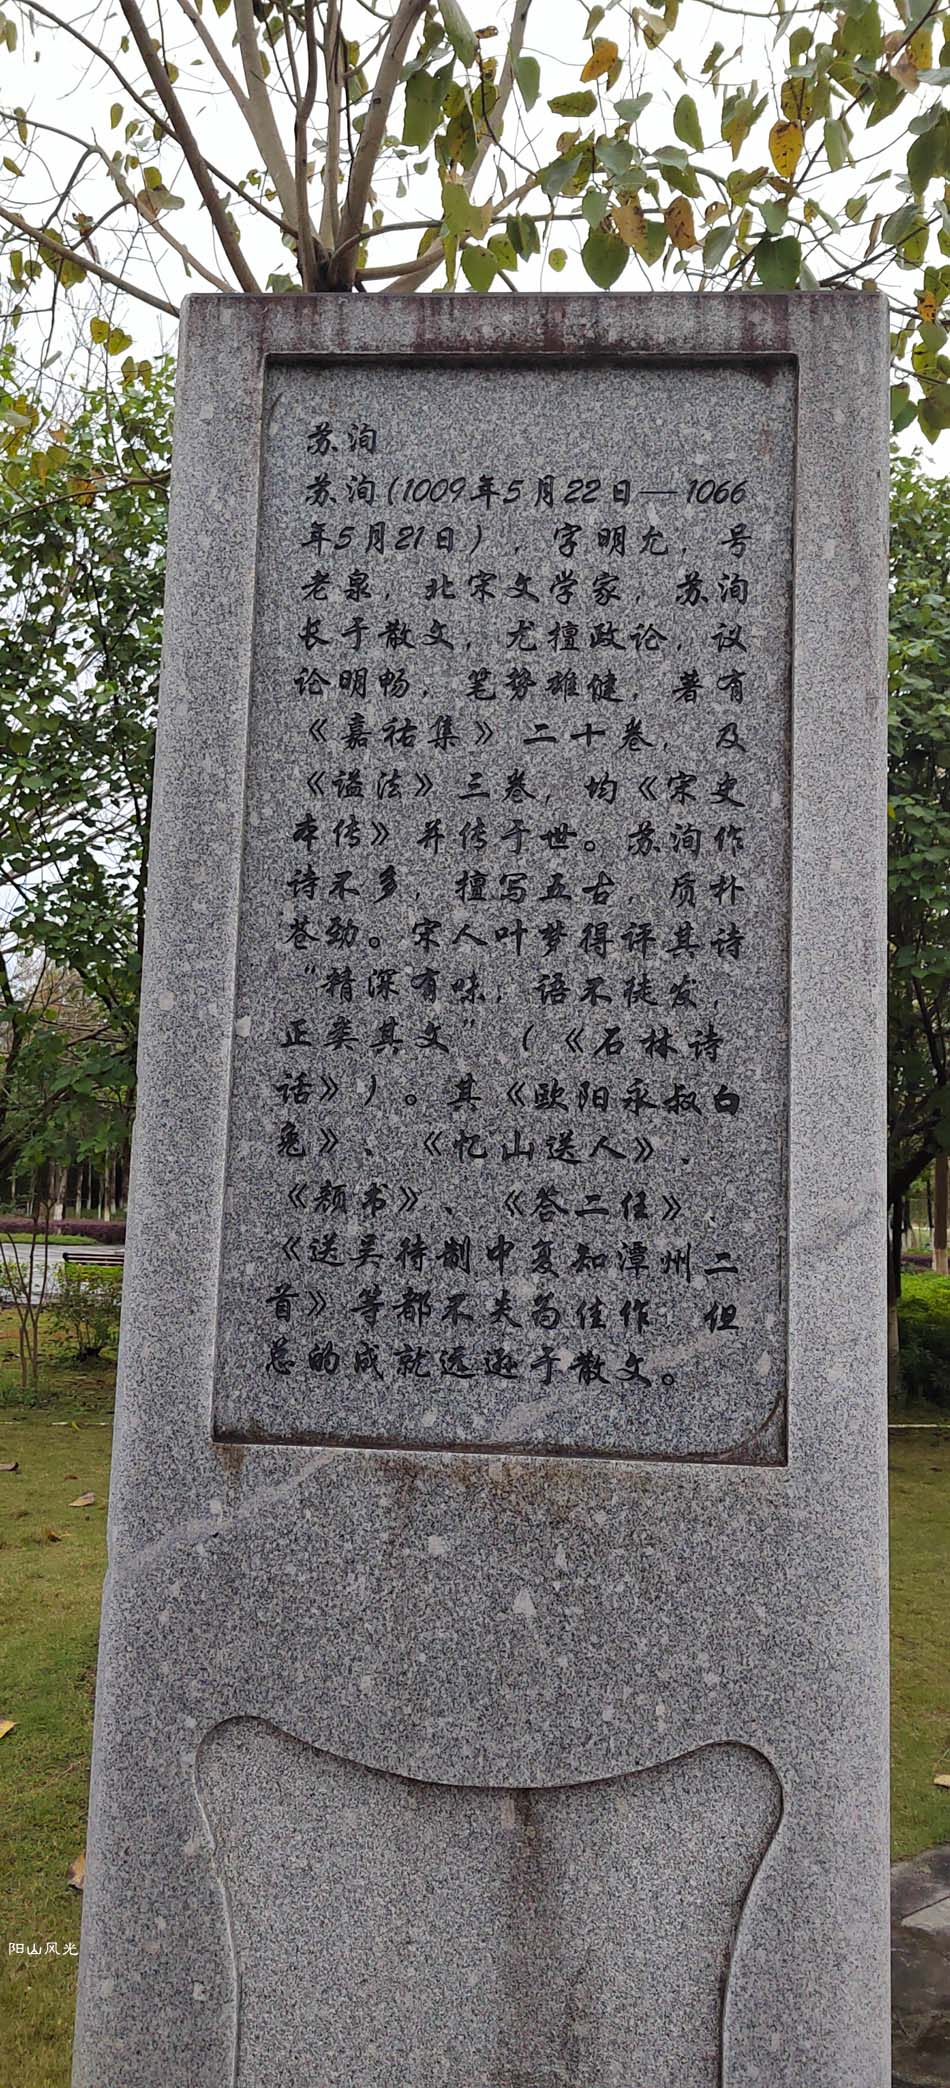 苏洵
苏洵(1009年5月22日—1066
年5月21日），字明允，号
老泉，北宋文学家，苏洵
长于散文，尤擅政论，议
论明畅，笔势雄健，著有
《嘉祐集》二十卷，及
《谥法》三卷，均《宋史
本传》并传于世。苏洵作
诗不多，擅写五古，质朴
苍劲。宋人叶梦得评其诗
“精深有味，语不徒发，
正类其文”（《石林诗
话》）。其《欧阳永叔白
兔》、《忆山送人》、
《颜书》、《答二任》、
《送吴待制中复知潭州二
首》等都不失为佳作，但
总的成就远逊于散文。
阳山风光